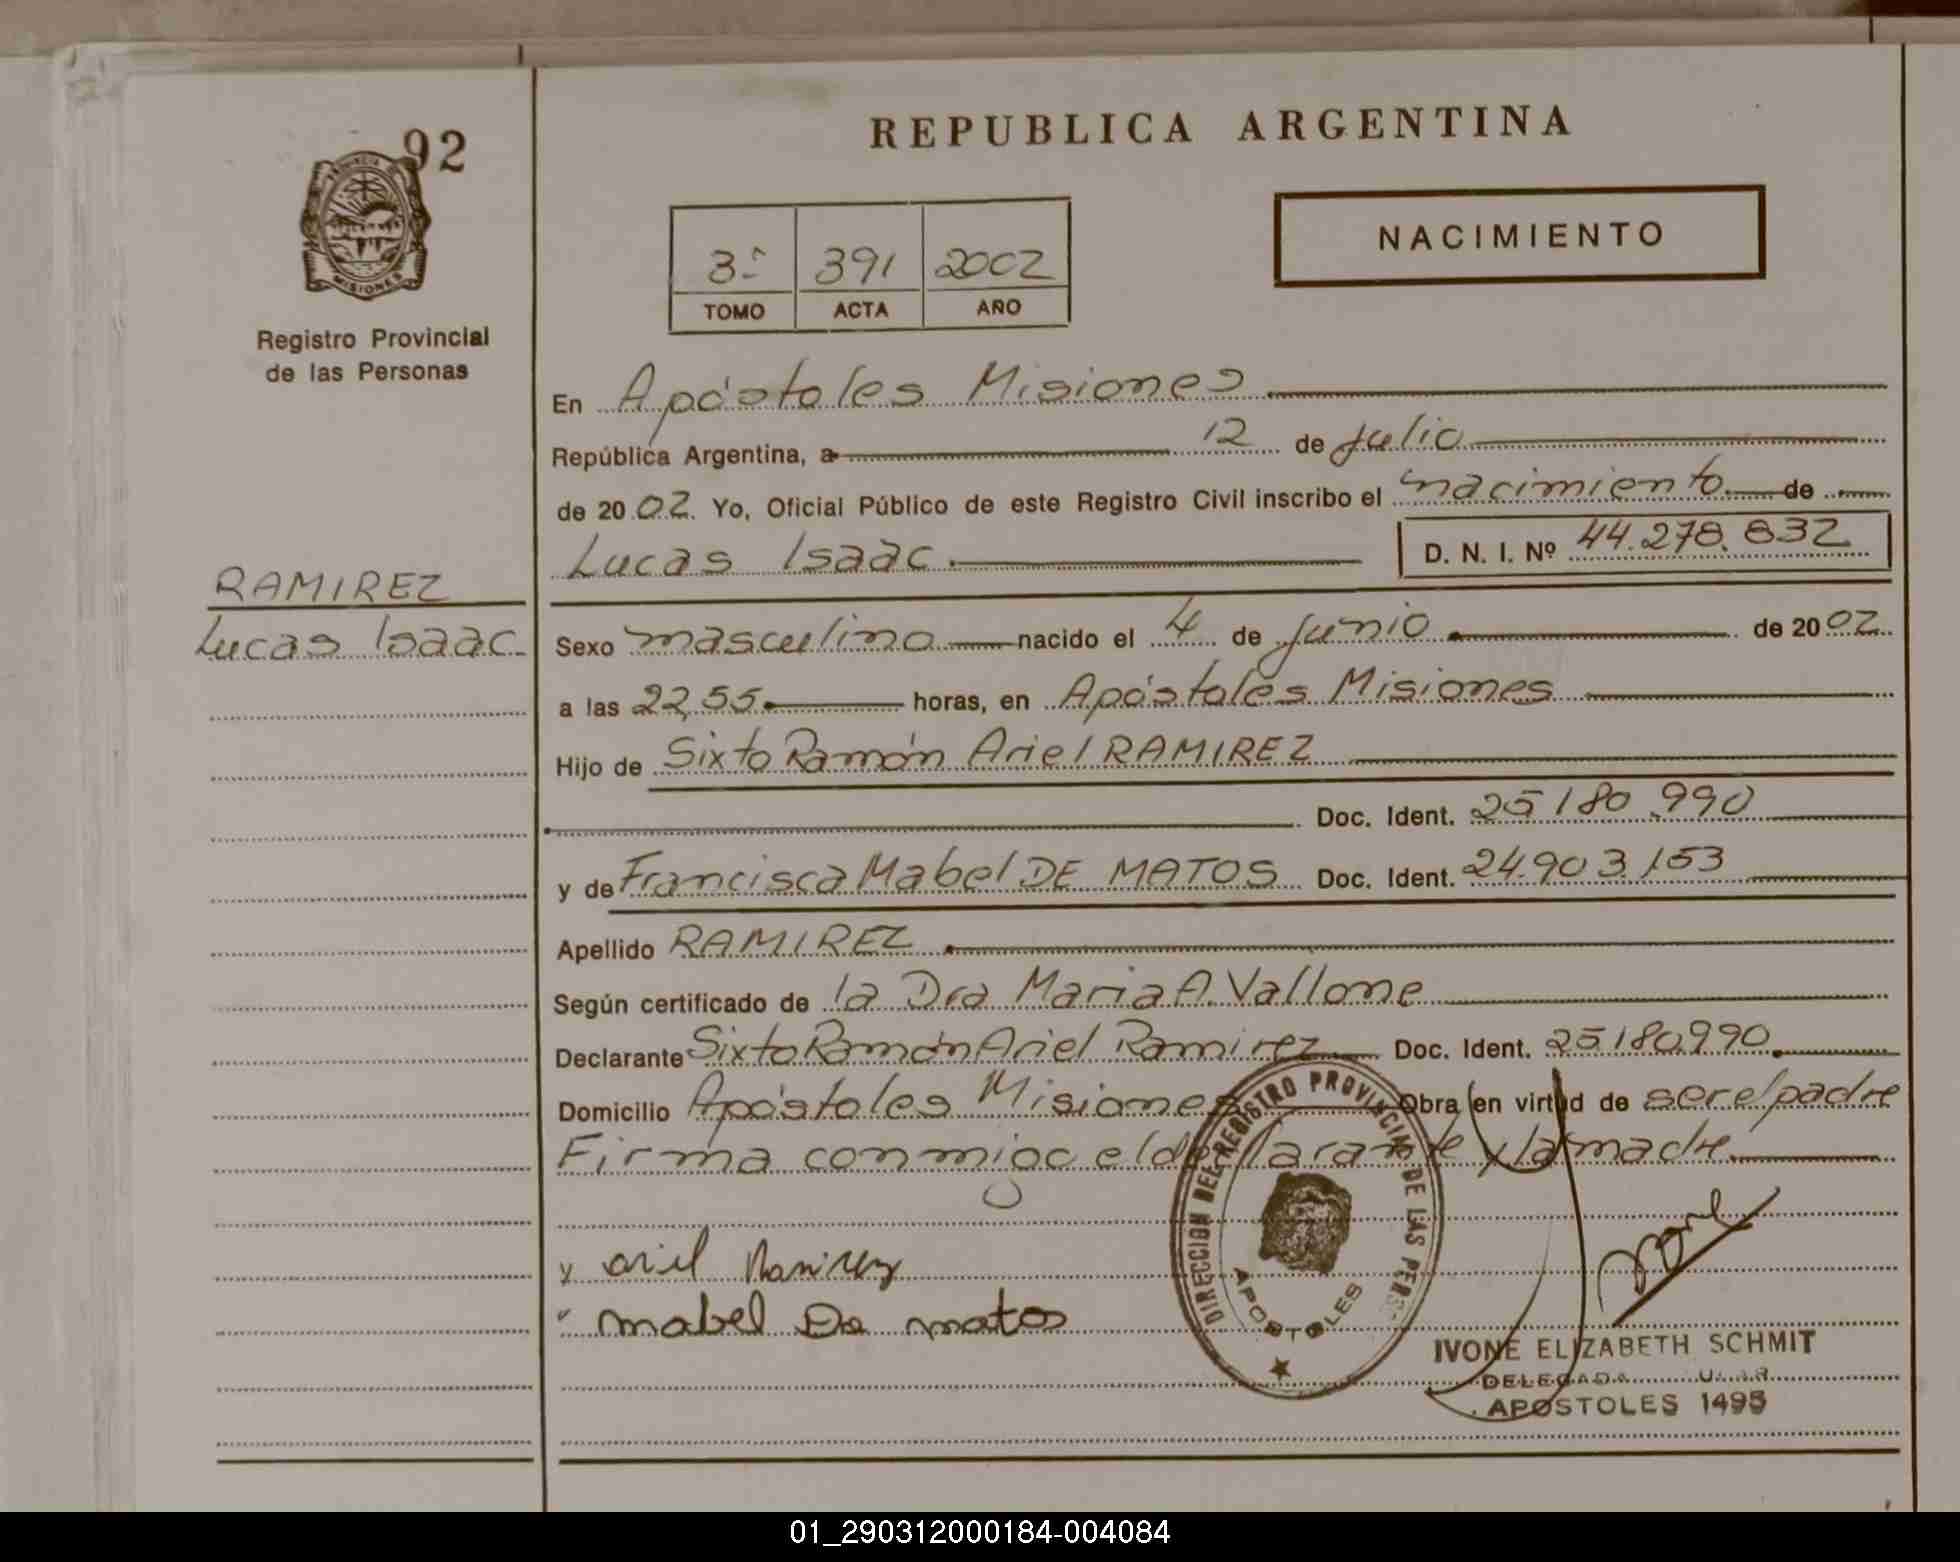 92
PROVINCIA DE
MISIONES
Registro Provincial
de las Personas
RAMIREZ
Lucas Isaac
REPUBLICA ARGENTINA
3º 391 2002
TOMO ACTA AÑO
NACIMIENTO
En Apóstoles Misiones
República Argentina, a 12 de Julio
de 2002. Yo, Oficial Público de este Registro Civil inscribo el nacimiento de
Lucas Isaac D. N. I. Nº 44.278.832
Sexo masculino nacido el 4 de Junio de 2002
a las 22,55 horas, en Apóstoles Misiones
Hijo de Sixto Ramón Ariel RAMIREZ
Doc. Ident. 25180.990
y de Francisca Mabel DE MATOS Doc. Ident. 24.903.153
Apellido RAMIREZ
Según certificado de la Dra Maria A. Vallone
Declarante Sixto Ramón Ariel Ramirez Doc. Ident. 25180990
Domicilio Apóstoles Misiones Obra en virtud de ser el padre
Firma conmigo el declarante y la madre
DIRECCION DEL REGISTRO PROVINCIAL DE LAS PERS
APOSTOLES
y ariel Ramirez
mabel De matos
Ivone
IVONE ELIZABETH SCHMIT
DELEGADA
APOSTOLES 1495
01_290312000184-004084